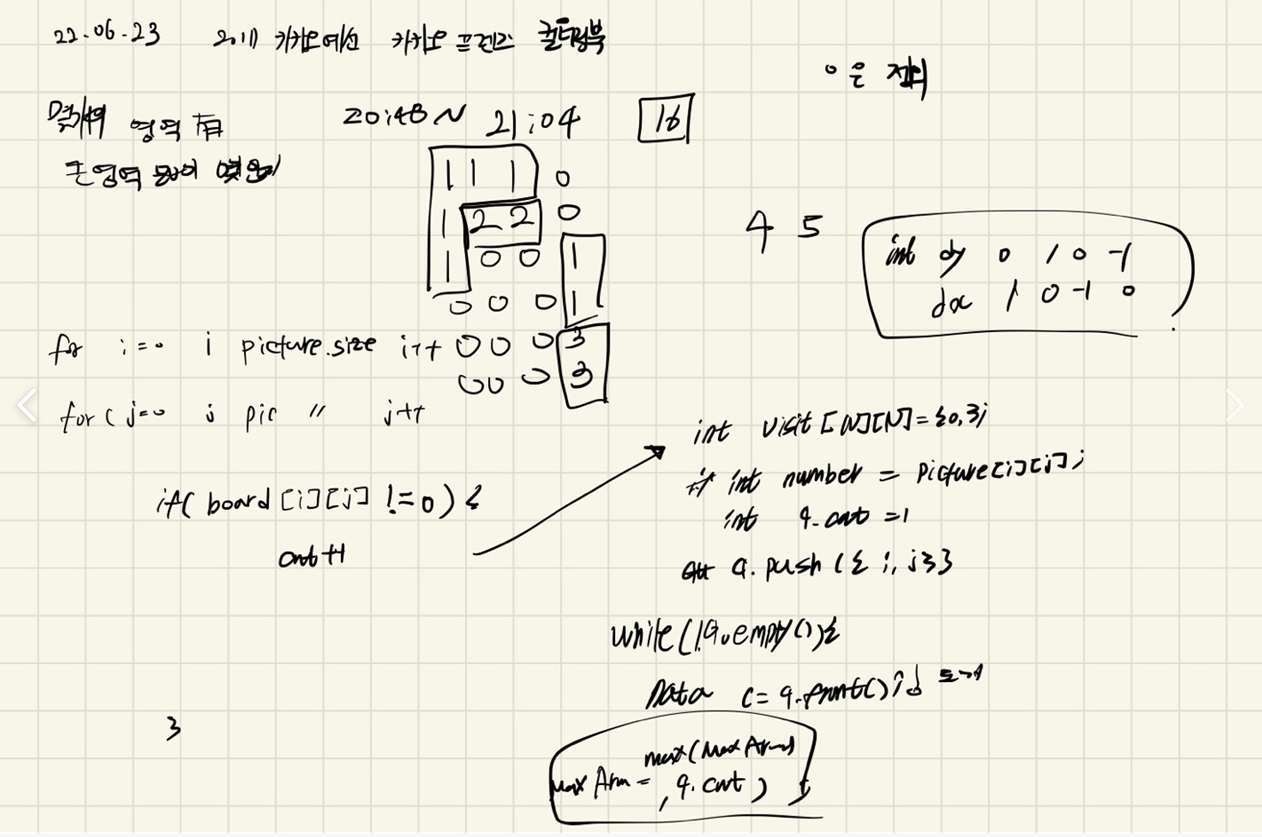 22.06.23 2017 카카오예선 카카오 프렌즈 컬러링북
0은 제외
몇개의 영역 有
20:48 ~ 21:04 16
큰 영역 몇
1 1 1 0
1 2 2 0
1 0 0 1
0 0 0 1
0 0 0 3
0 0 0 3
4 5
int dy 0 1 0 -1
dx 1 0 -1 0
for i=0 i picture.size i++
for ( j=0 j pic 〃 j++
if( board[i][j] != 0 ) {
cnt++
int visit[N][N]={0,};
int number = picture[i][j];
int q.cnt =1
q.push ({ i, j})
while(!q.empty()){
Data c= q.front();
max Area = max(Max Area
, q.cnt )
}